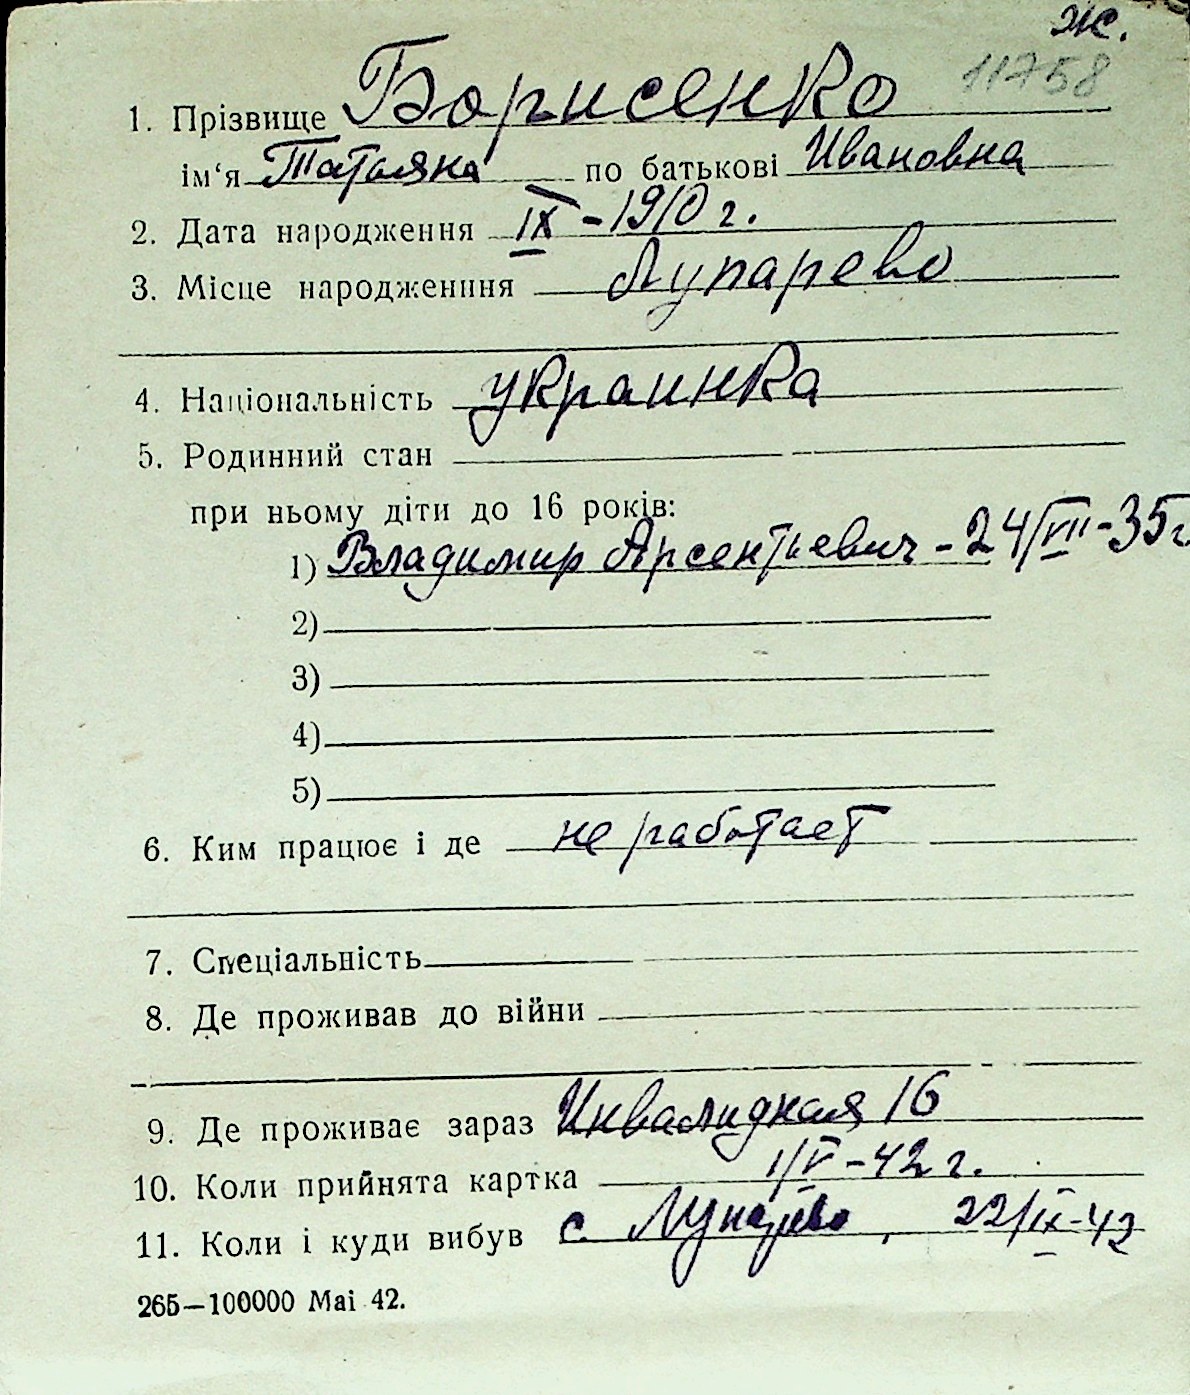 ж.
11758
1. Прізвище Борисенко
ім‘я Татьяна по батькові Ивановна
2. Дата народження IX - 1910 г.
3. Місце народженння Лупарево
4. Національність украинка
5. Родинний стан
при ньому діти до 16 років:
1) Владимир Арсентьевич - 24/VII - 35 г
2)
3)
4)
5)
6. Ким працює і де не работает
7. Спеціальність
8. Де проживав до війни
9. Де проживає зараз Инвалидная 16
10. Коли прийнята картка 1/V - 42 г.
11. Коли і куди вибув с. Лупарево, 22/IX - 42
265—100000 Mai 42.